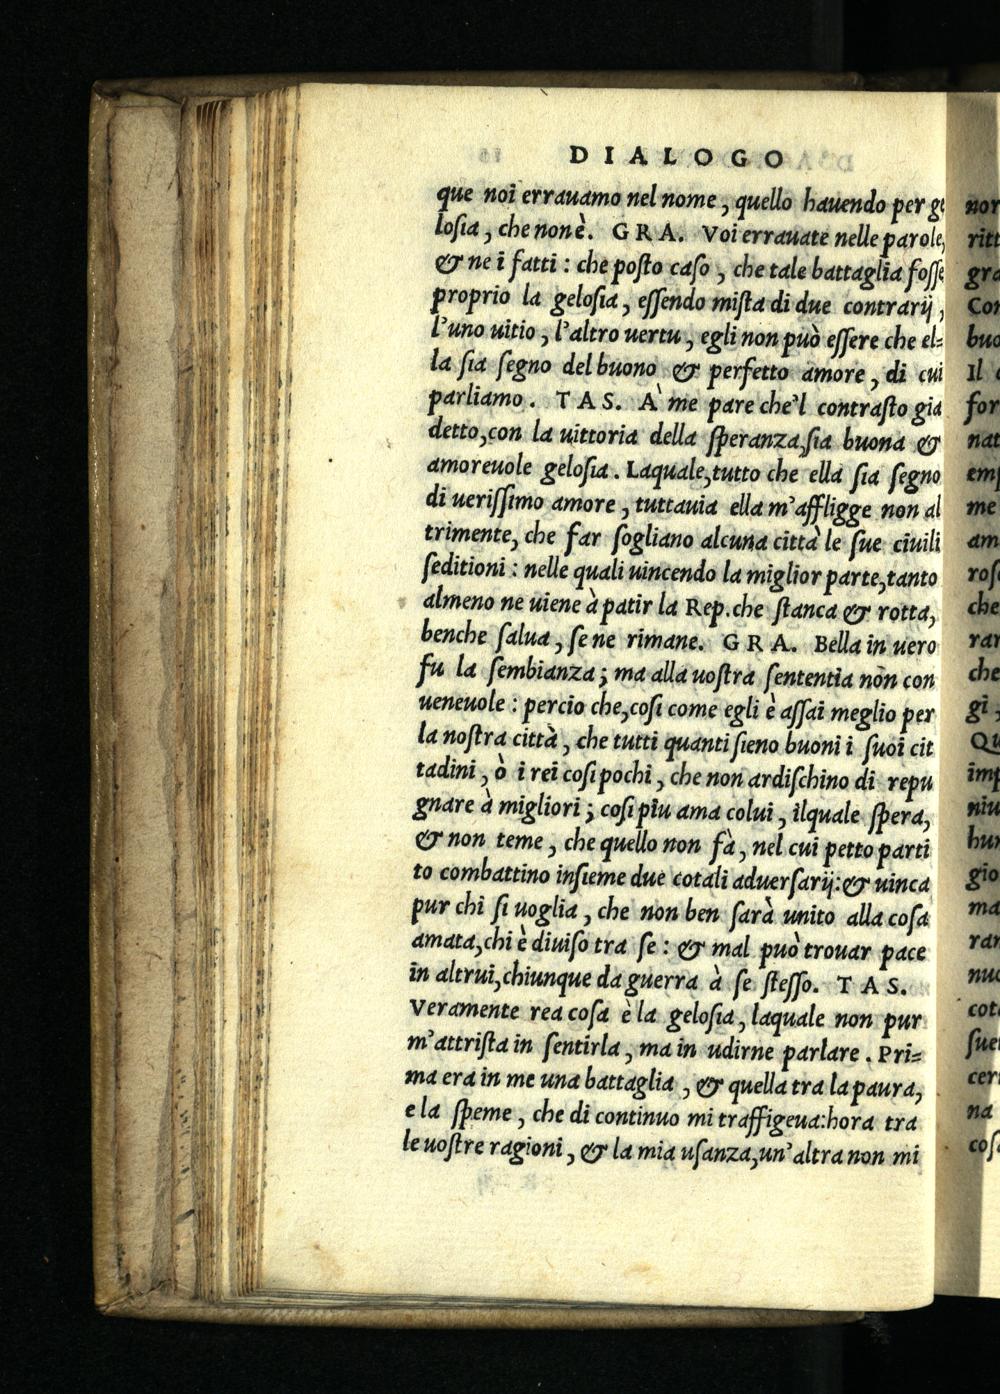 DIALOGO
que noi errauamo nel nome, quello hauendo per ge
losia, che non è. GRA. Voi errauate nelle parole,
& ne i fatti: che posto caso, che tale battaglia fosse
proprio la gelosia, essendo mista di due contrarij,
l'uno uitio, l'altro uertu, egli non può essere che el=
la sia segno del buono & perfetto amore, di cui
parliamo. TAS. A' me pare che'l contrasto gia
detto, con la uittoria della speranza, sia buona &
amoreuole gelosia. Laquale, tutto che ella sia segno
di uerissimo amore, tuttauia ella m'affligge non al
trimente, che far sogliano alcuna città le sue ciuili
seditioni: nelle quali uincendo la miglior parte, tanto
almeno ne uiene à patir la Rep. che stanca & rotta,
benche salua, se ne rimane. GRA. Bella in uero
fu la sembianza; ma alla uostra sententia non con
ueneuole: percio che, cosi come egli è assai meglio per
la nostra città, che tutti quanti sieno buoni i suoi cit
tadini, ò i rei cosi pochi, che non ardischino di repu
gnare à migliori; cosi piu ama colui, ilquale spera,
& non teme, che quello non fà, nel cui petto parti
to combattino insieme due cotali aduersarij: & uinca
pur chi si uoglia, che non ben sarà unito alla cosa
amata, chi è diuiso tra se: & mal può trouar pace
in altrui, chiunque da guerra à se stesso. TAS.
Veramente rea cosa è la gelosia, laquale non pur
m'attrista in sentirla, ma in udirne parlare. Pri=
ma era in me una battaglia, & quella tra la paura,
e la speme, che di continuo mi traffigeua: hora tra
le uostre ragioni, & la mia usanza, un'altra non mi